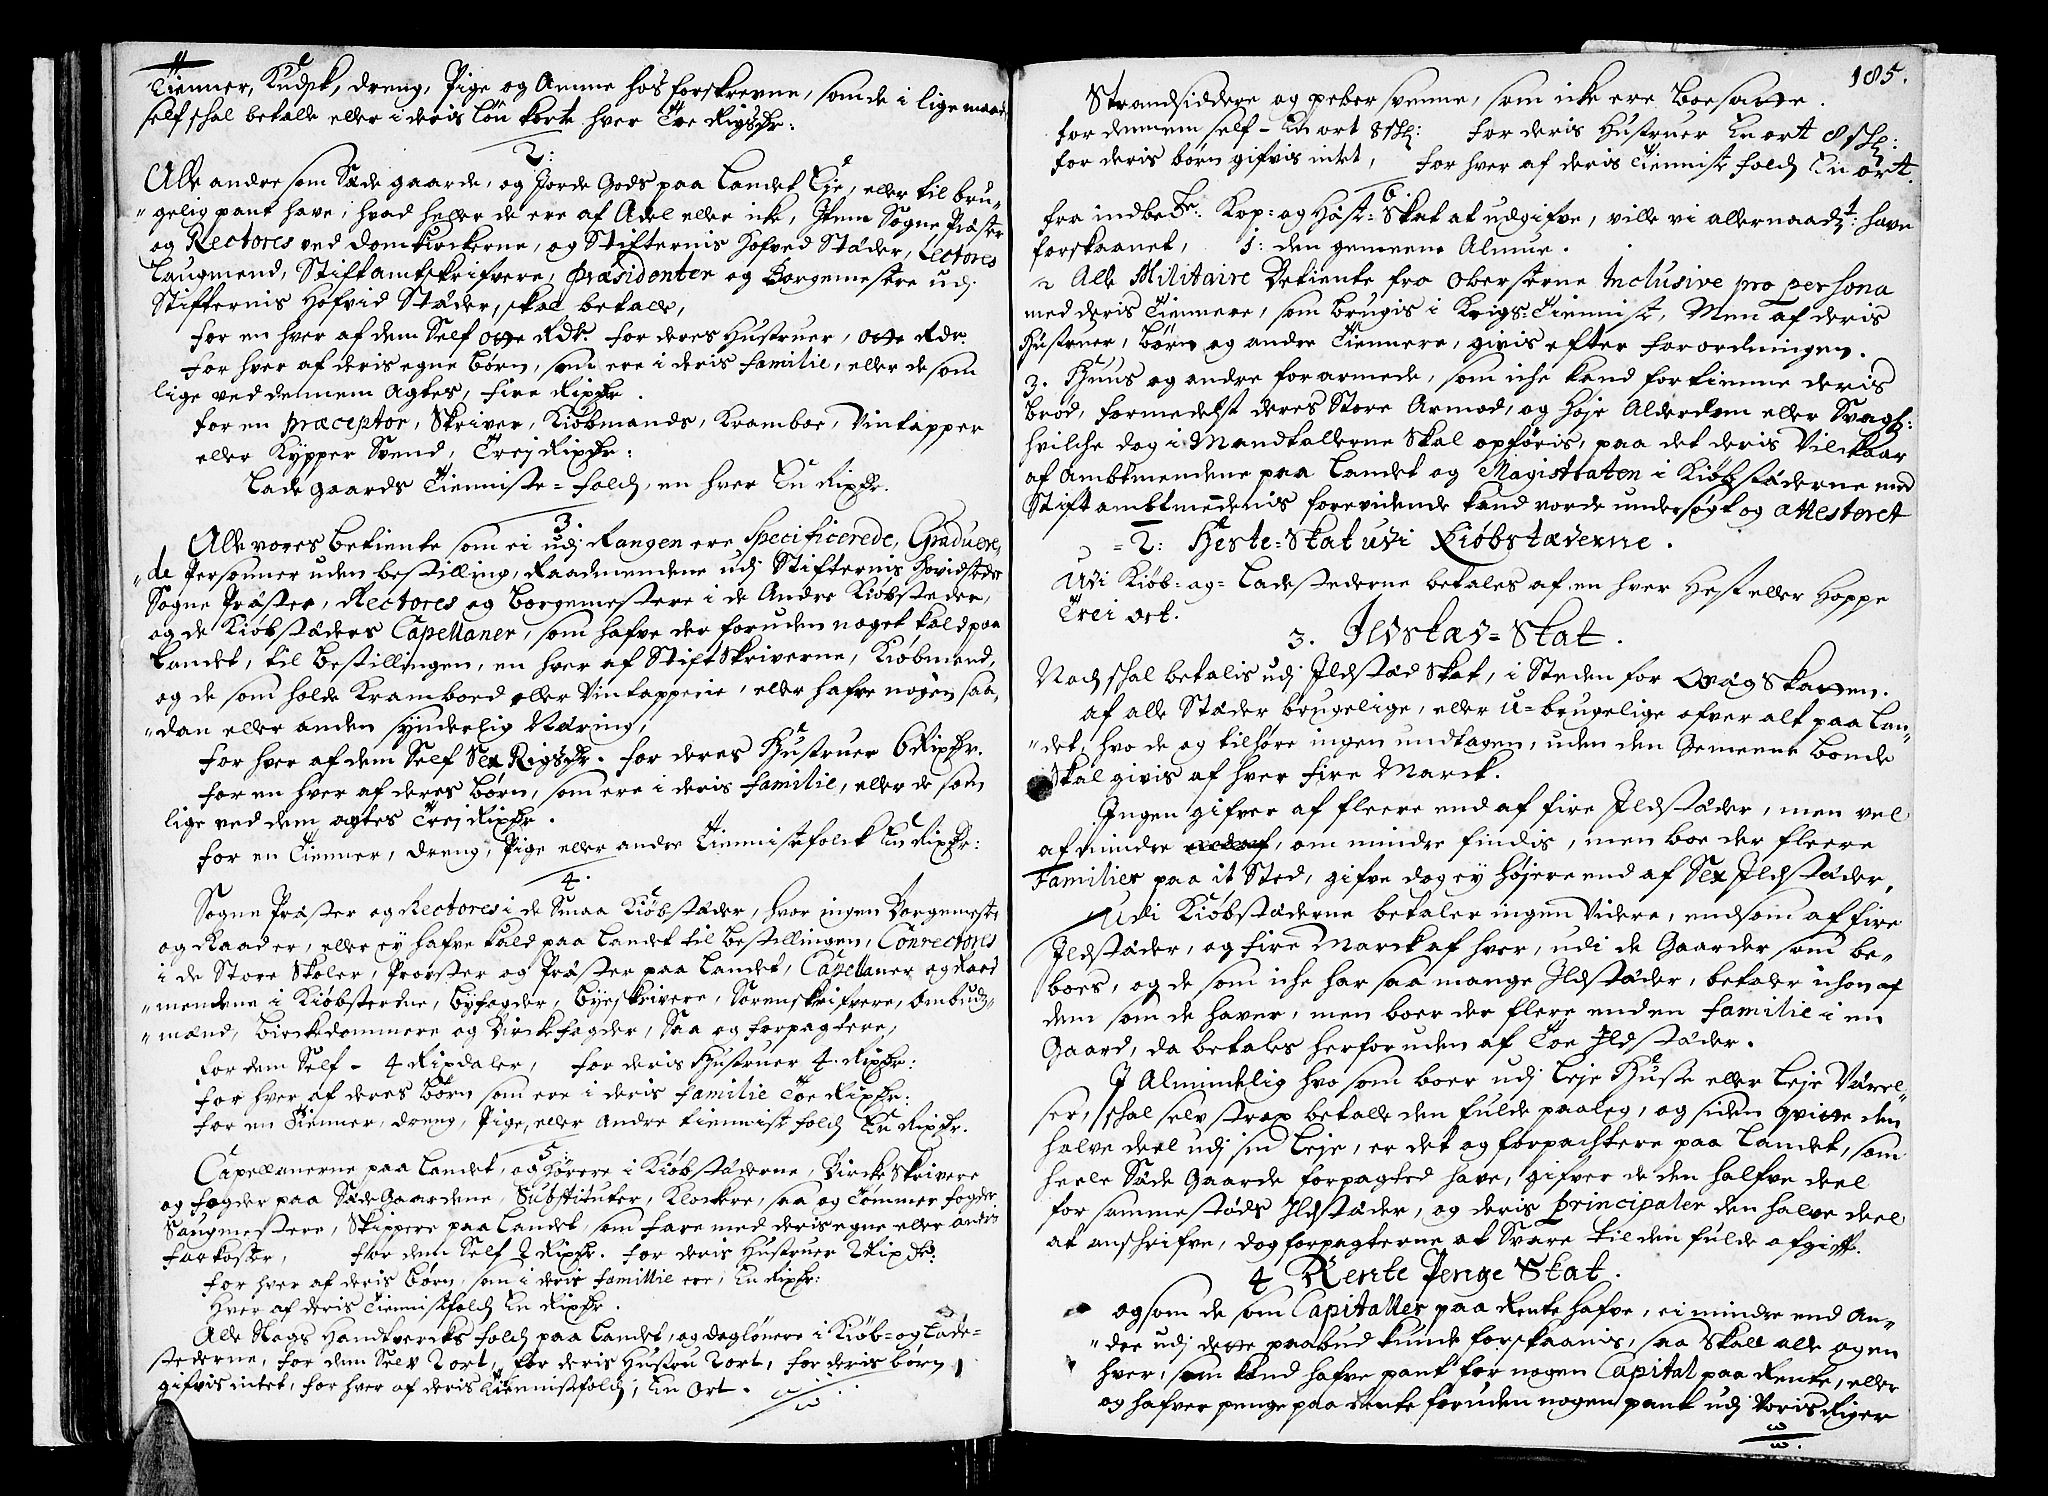 Tienner, Kudsk, dreng, Pige og Amme hos forskrevne, som de i lige maade
self skal betalle eller i deris løn korte hver Toe Rigsdr:
2:
Alle andre som Sæde gaarde, og Jorde Gods paa Landet Eje, eller til bru-
"gelig pant have, hvad heller de ere af Adel eller icke, Item Sogne Præster
og Rectores ved domkirckerne, og Stifternis Hofved Stæder, Lectores
Laugmend, Stiftamtskrifvere, Præsidenter og Borgemestere udj
Stifternis Hofvid Stæder, skal betale,
for en hver af dem Self otte Rdr. for deres Hustruer, otte Rdr.
for hver af deris egne børn, som ere i deris familie, eller de som
lige ved dennem Agtes, fire Rixdr.
for en Præceptor, Skriver, Kiøbmands, Kramboe, Vintapper
eller Kypper Svend, Trej Rixdr:
Lade gaards Tienniste-folch, en hver En Rixdr.
3
Alle vores betiente som ei udj Rangen ere Specificerede, Graduere,
"de Personner uden bestilling, Raadmendene udj Stifternis Hovidstæder
Sogne Præster, Rectores og borgemestere i de Andre Kiøbsteder,
og de Kiøbstæders Capellaner, som hafve der foruden noget kald paa
Landet, til bestillingen, en hver af StiftSkriverne, Kiøbmend,
og de som holde Kramboed eller Vintapperie, eller hafve nogen saa,
"dan eller anden synderlig Næring,
for hver af dem Self Sex Rigsdr. for deres Hustruer 6 Rixdr.
for en hver af deres børn, som ere i deris familie, eller de som
lige ved dem agtes Trej Rixdr.
for en Tienner, dreng, Pige eller andre Tiennistefolck En Rixdr:
4.
Sogne Præster og Rectores i de Smaa Kiøbstæder, hvor ingen Borgemestr
og Raad er, eller ej hafve kald paa Landet til bestillingen, Conrectores
i de Store Skoler, Provster og Præster paa Landet, Capellaner og Raad
"mendene i Kiøbstederne, byfogder, byeskrivere, Sorenskrifvere, Ombuds-
"mænd, birckedommere og Birckefogder, Saa og forpagtere,
for dem Self - 4 Rixdaler, for deris Hustruer 4. Rixdr:
for hver af deres børn som ere i deris familie Toe Rixdr:
for en Tienner, dreng, Pige, eller Andre tiennist folch En Rixdr.
5.
Capellanerne paa Landet, og Hørere i Kiøbstæderne, Bircke Skrivere
og fogder paa SædeGaardene, Substituter, Klockere, saa og Tømmer fogder
Saugmestere, Skippere paa Landet, som fare med deris egne eller andris
farkoster, for dem Self 2 Rixdr. for deris Hustruer 2 Rixdr:
for hver af deris børn, som i deris famillie ere, En Rixdr:
Hver af deris Tiennistfolch En Rixdr.
Alle Slags Handtvercks folch paa Landet, og daglønere i Kiøb- og Lade-
stederne, for dem Selv 2 ort, for deris Hustru 2 ort, for deris børn
gifvis intet, for hver af deris Tiennistfolch, En ort.
185.
Strandsiddere og pebersvenne, som icke ere boesatte.
for dennem self - En ort 8 sh: for deris Hustruer En ort 8 sh:
for deris børn gifvis intet, for hver af deris Tienniste folch En ort.
6.
fra indbete: Kop- og Hæst-Skat at udgifve, ville vi allernaadt: have
forskaanet, 1: den gemeene Almue.
2 Alle Militaire betiente fra Obersterne Inclusive pro persona
med deris Tiennere, som brugis i Krigs-Tiennist, Men af deris
Hustruer, børn og andre Tiennere, givis efter forordningen.
3. Huus og andre forarmede, som iche kand fortienne deris
brød, formedelst deres Store Armod, og høje Alderdom eller Svagh:
hvilche dog i Mandtallerne Skal opføris, paa det deris Vilckaar
af Ambtmendene paa Landet og Magistraten i Kiøbstæderne med
Stiftambtmedenis forevidende kand vorde undersøgt og Attesteret
2: Heste-Skat udi Kiøbstæderne.
Udi Kiøb- og Ladestederne betales af en hver Hest eller Hoppe
Trei ort.
3. Ildstæd-Skat.
Nock skal betalis udj Ildstæd Skat, i Steden for Qvæg Skatten.
af alle Stæder brugelige, eller u-brugelige ofver alt paa Lan-
"det, hvo de og tilhøre ingen undtagen, uden den Gemeene bonde
Skal givis af hver fire Marck.
Ingen gifver af fleere end af fire Ildstæder, men vel
af mindre, om mindre findis, men boe der fleere
familier paa it Sted, gifve dog ey højere end af Sex Ildstæder,
Udi Kiøbstæderne betaler ingen Videre, endsom af fire
Ildstæder, og fire Marck af hver, udi de Gaarder som be-
boes, og de som iche har saa mange Ildstæder, betaler ichun af
dem som de haver, men boer der flere end en familie i en
Gaard, da betales herforuden af Toe Ildstæder.
I Almindelig hvo som boer udj Leje Huse eller Leje Værel-
ser, skal selv strax betalle den fulde paaleg, og siden qvitte den
halve deel udj sin Leje, er det og forpachtere paa Landet, som
heele Sæde Gaarde forpagted have, gifver de den halfve deel
for sammestæds Ildstæder, og deris Principaler den halve deel
at anskrifve, dog forpagterne at Svare til den fulde afgift.
4 Rente Penge Skat.
og som de som Capitaller paa Rente hafve, ei mindre end An-
"dre udj dette paabud kunde forskaanis, saa Skall alle og en
hver, som kand hafve pant for nogen Capital paa Rente, eller
og hafver penge paa Rente foruden nogen pant udj Voris Riger